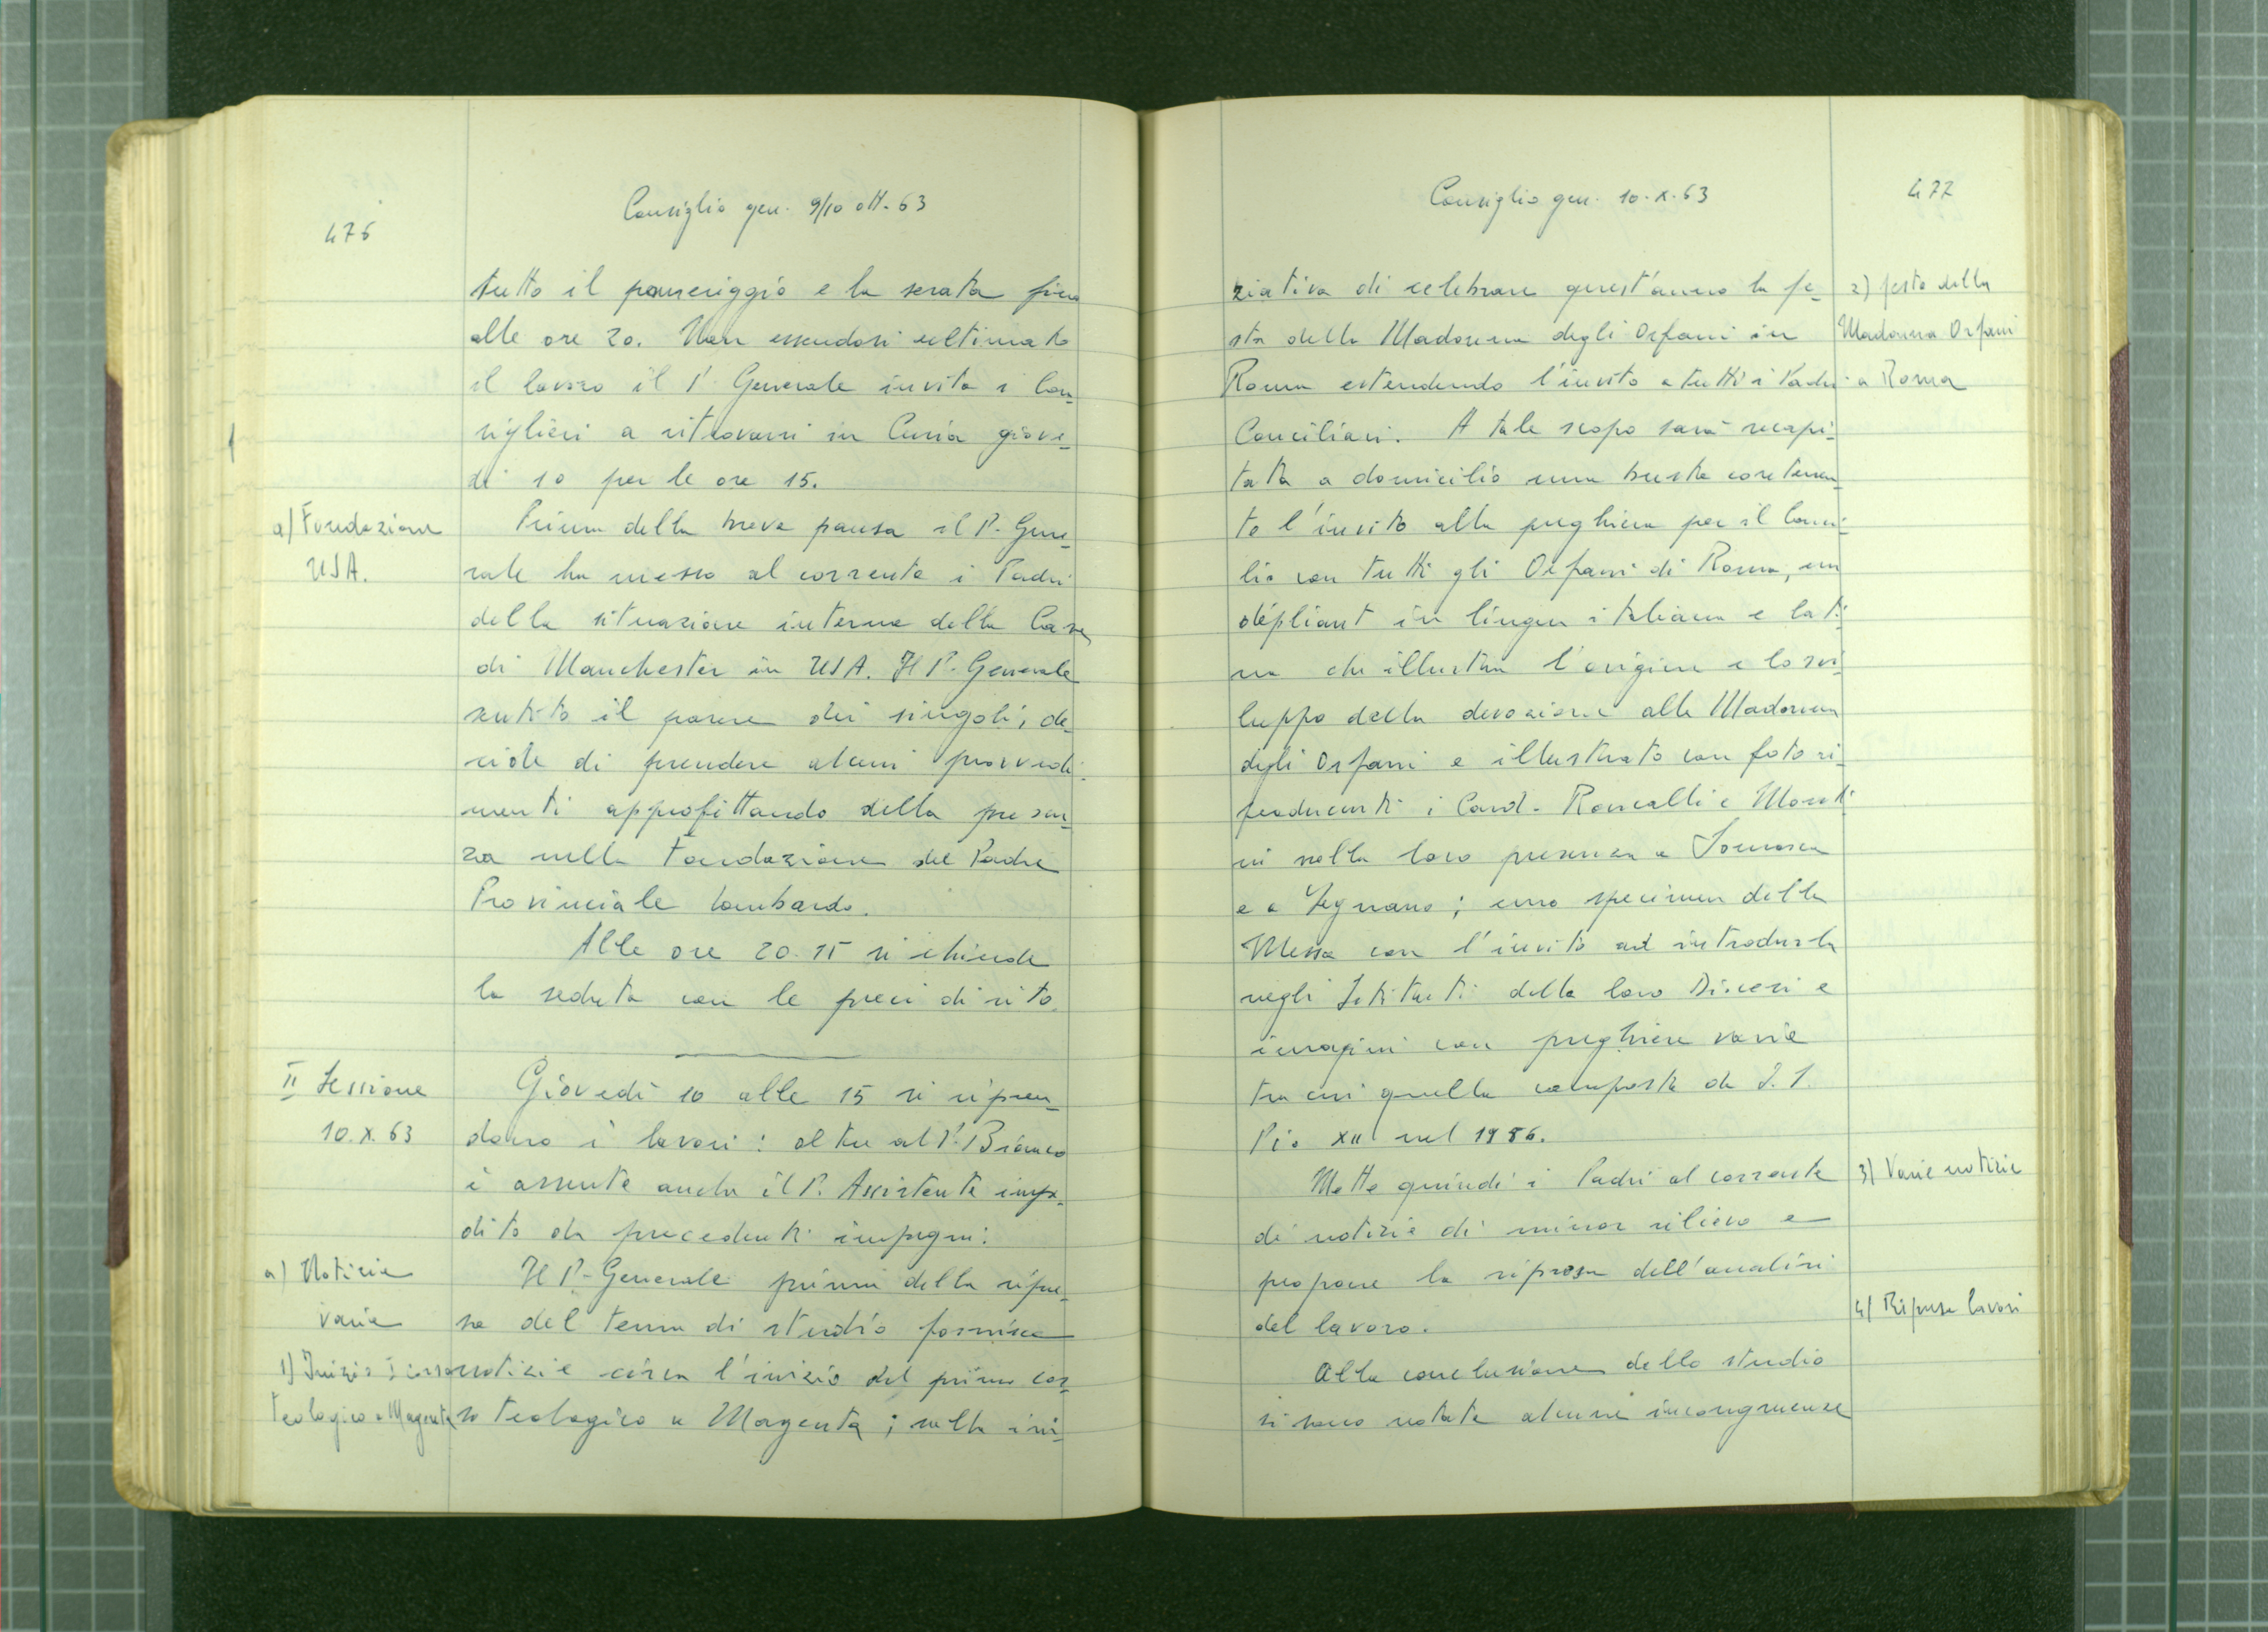 476
Consiglio gen. 9/10 ott. 63
tutto il pomeriggio e la serata fino
alle ore 20. Non essendosi ultimato
il lavoro il P. Generale invita i Con-
siglieri a ritrovarsi in Curia giove-
dì 10 per le ore 15.
a) Fondazione
USA.
Prima della breve pausa il P. Gene-
rale ha messo al corrente i Padri
della situazione interna della Casa
di Manchester in USA. Il P. Generale
sentito il parere dei singoli, de-
cide di prendere alcuni provvedi-
menti approfittando della presen-
za nella Fondazione del Padre
Provinciale Lombardo.
Alle ore 20.15 si chiude
la seduta con le preci di rito.
II Sessione
10.X.63
Giovedì 10 alle 15 si ripren-
dono i lavori: oltre al P. Bianco
è assente anche il P. Assistente impe-
dito da precedenti impegni.
a) Notizie
varie
Il P. Generale prima della ripre-
sa del tema di studio fornisce
1) Inizio I corso
teologico a Magenta
notizie circa l'inizio del primo cor-
so teologico a Magenta; sulla ini-
Consiglio gen. 10.X.63
477
ziativa di celebrare quest'anno la fe-
sta della Madonna degli Orfani in
Roma estendendo l'invito a tutti i Padri
Conciliari. A tale scopo sarà recapi-
tata a domicilio una busta contenen-
te l'invito alla preghiera per il Conci-
lio con tutti gli Orfani di Roma, un
dépliant in lingua italiana e lati-
na che illustra l'origine e lo svi-
luppo della devozione alla Madonna
degli Orfani e illustrato con foto ri-
producenti i Card. Roncalli e Monti-
ni nella loro presenza a Somasca
e a Legnano; uno specimen della
Messa con l'invito ad introdurla
negli Istituti della loro Diocesi e
immagini con preghiere varie
tra cui quella composta da S.S.
Pio XII nel 1956.
2) festa della
Madonna Orfani
a Roma
Mette quindi i Padri al corrente
di notizie di minor rilievo e
propone la ripresa dell'analisi
del lavoro.
3) Varie notizie
4) Ripresa lavori
Alla conclusione dello studio
si sono notate alcune incongruenze